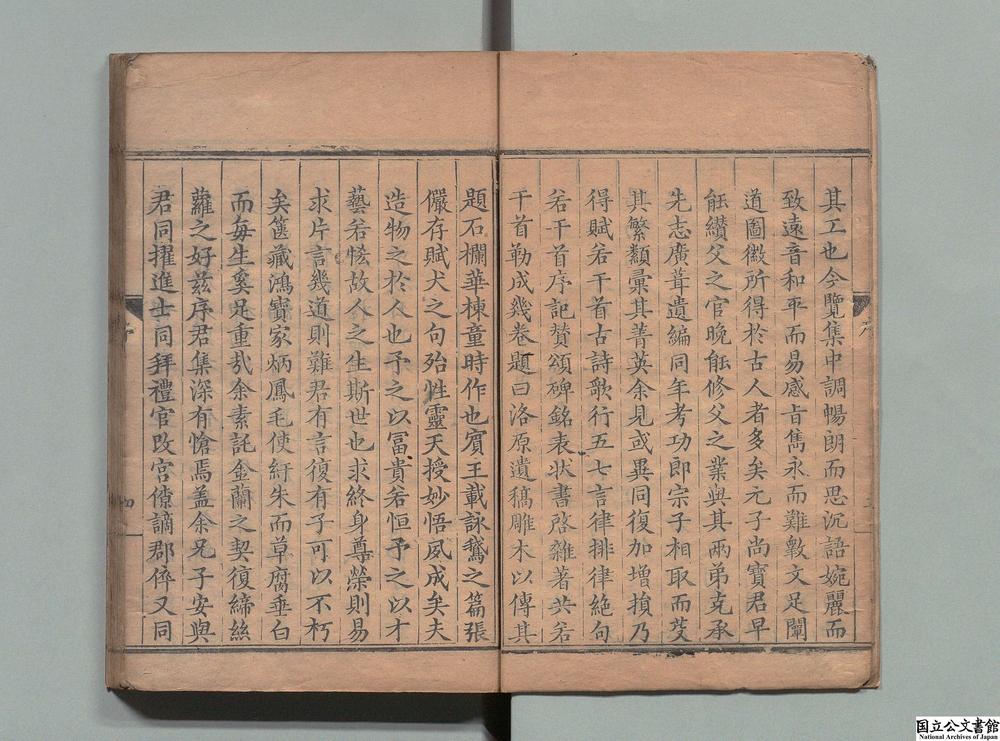 其工也今覽集中調暢朗而思沉語婉麗而
致遠音和平而易感旨雋永而難斁文足闡
道圖徽所得於古人者多矣元子尚寶君早
能纘父之官晚能修父之業與其兩弟克承
先志廣葺遺編同年考功即宗子相取而芟
其繁纇彙其菁英余見或異同復加增損乃
得賦若干首古詩歌行五七言律排律絶句
若干首序記贊頌碑銘表状書啓雜著共若
干首勒成幾卷題曰洛原遺稿雕木以傳其
題石欄華棟童時作也賓王載詠鵞之篇張
儼存賦犬之句殆性靈天授妙悟夙成矣夫
造物之於人也予之以冨貴若恒予之以才
藝若悋故人之生斯世也求終身尊榮則易
求片言幾道則難君有言復有子可以不朽
矣篋藏鴻寶家炳鳳毛使紆朱而草腐垂白
而每生奚足重㢤余素託金蘭之契復締絲
蘿之好兹序君集深有愴焉盖余兄子安與
君同擢進士同拜禮官改宫僚謫郡倅又同
序
四
国立公文書館
National Archives of Japan